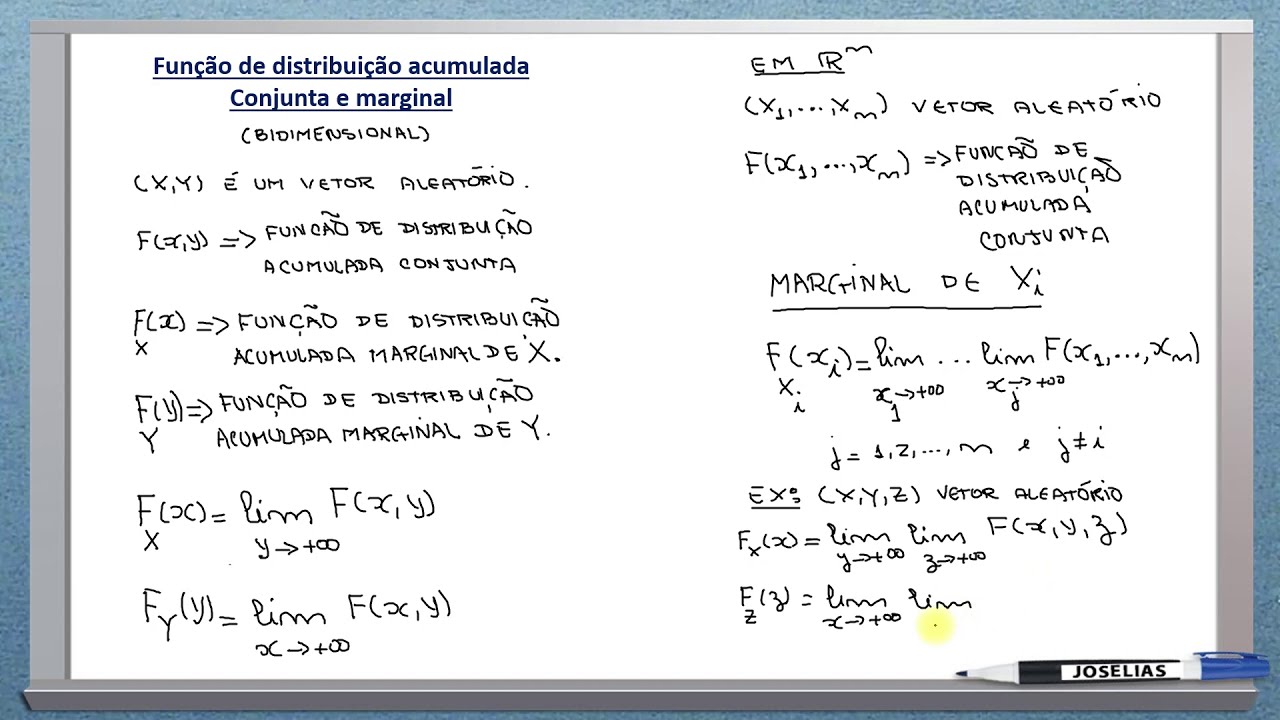 Função de distribuição acumulada
Conjunta e marginal
(BIDIMENSIONAL)
(X,Y) É UM VETOR ALEATÓRIO.
F(x,y) => FUNCÃO DE DISTRIBUÇÃO
ACUMULADA CONJUNTA
F_X(x) => FUNÇÃO DE DISTRIBUIÇÃO
ACUMULADA MARGINAL DE X.
F_Y(y) => FUNÇÃO DE DISTRIBUIÇÃO
ACUMULADA MARGINAL DE Y.
F_X(x) = lim F(x,y)
y→+∞
F_Y(y) = lim F(x,y)
x→+∞
EM ℝ^n
(X_1,...,X_n) VETOR ALEATÓRIO
F(x_1,...,x_n) => FUNCÃO DE
DISTRIBUIÇÃO
ACUMULADA
CONJUNTA
MARGINAL DE X_i
F_{X_i}(x_i) = lim ... lim F(x_1,...,x_n)
x_1→+∞ x_j→+∞
j = 1,2,...,n e j≠i
EX: (X,Y,Z) VETOR ALEATÓRIO
F_X(x) = lim lim F(x,y,z)
y→+∞ z→+∞
F_Z(z) = lim lim
x→+∞
JOSELIAS